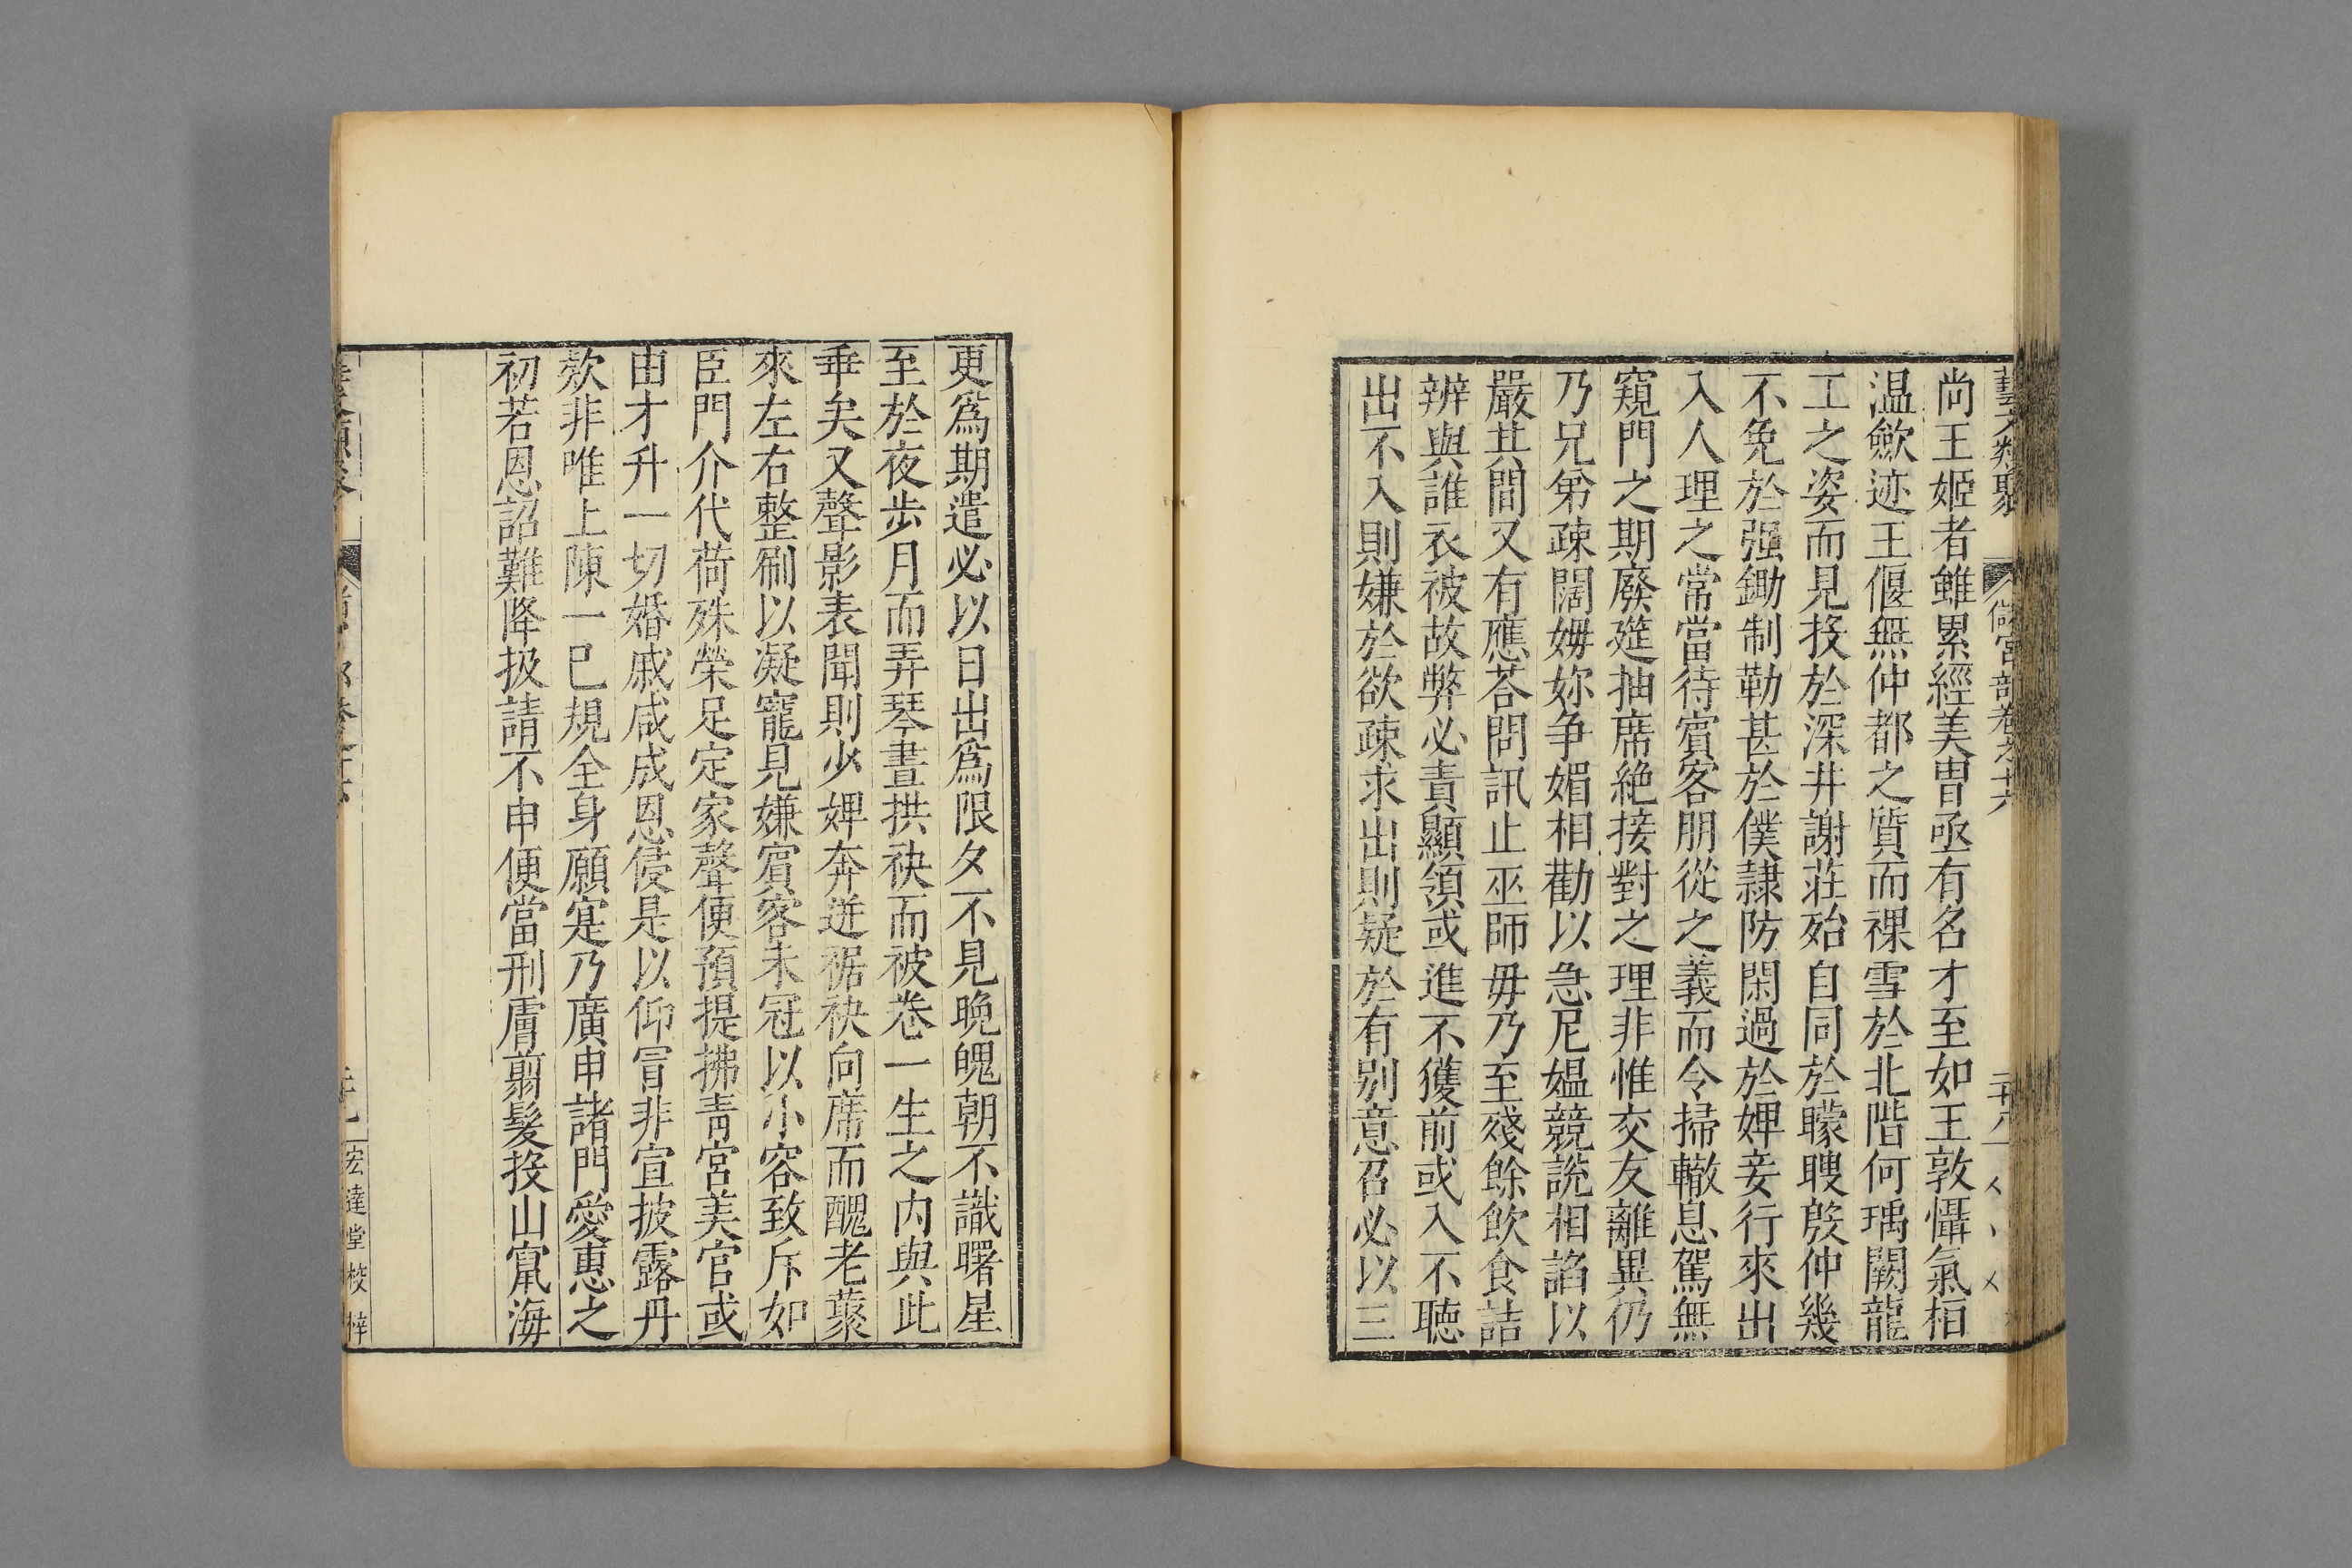 藝文類聚 儲宮部卷之十六
尚王姬者雖累經美胄亟有名才至如王敦懾氣桓
温歛迹王偃無仲都之質而祼雪於北階何瑀闕龍
工之姿而見投於深井謝莊殆自同於矇瞍殷仲幾
不免於强鋤制勒甚於僕隷防閑過於婢妾行來出
入人理之常當待賓客朋從之義而令掃轍息駕無
窺門之期廢筵抽席絶接對之理非惟交友離異仍
乃兄弟疎闊姆妳争媚相勸以急尼媪競説相諂以
嚴其間又有應荅問訊止巫師毋乃至殘餘飲食詰
辨與誰衣被故弊必責顯領或進不獲前或入不聴
出不入則嫌於欲疎求出則疑於有别意召必以三
更爲期遣必以日出爲限夕不見晚魄朝不識曙星
至於夜步月而弄琴晝拱袂而被卷一生之内與此
垂矣又聲影表聞則少婢奔迸裾袂向席而醜老藂
來左右整刷以凝寵見嫌賓客未冠以小容致斥如
臣門介代荷殊榮足定家聲便預提拂青宮美官或
由才升一切婚戚咸成恩侵是以仰冒非宣披露丹
欵非唯上陳一已規全身願寔乃廣申諸門愛惠之
初若恩詔難降扱請不申便當刑膚翦髮投山竄海
宏達堂校梓